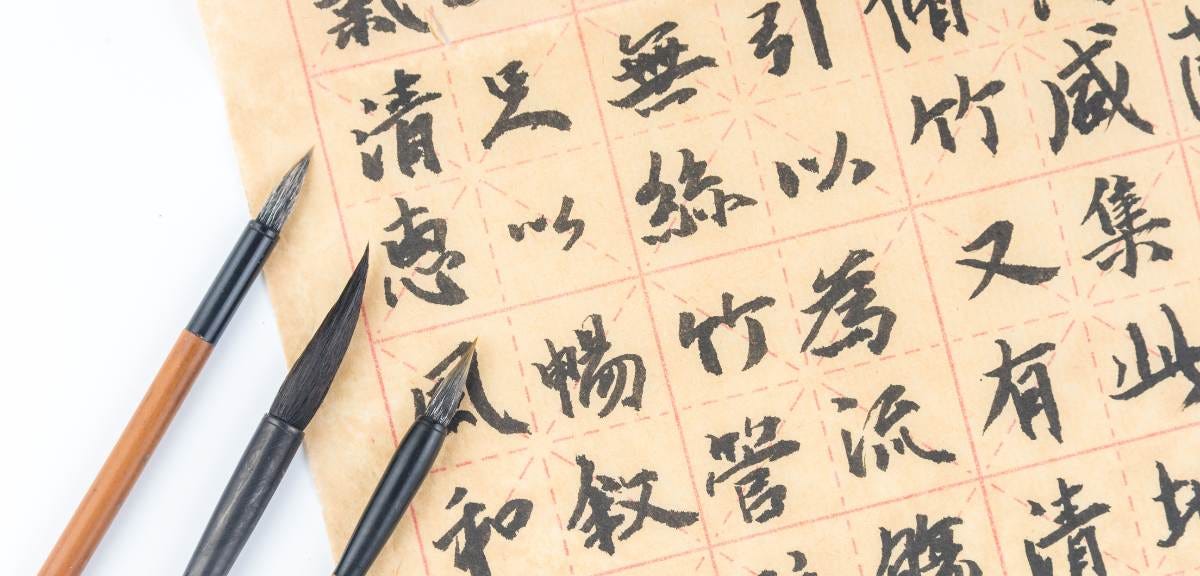 咸集此地
脩竹又有清
引以為流觴
無絲竹管
足以暢敘
氣清惠風和